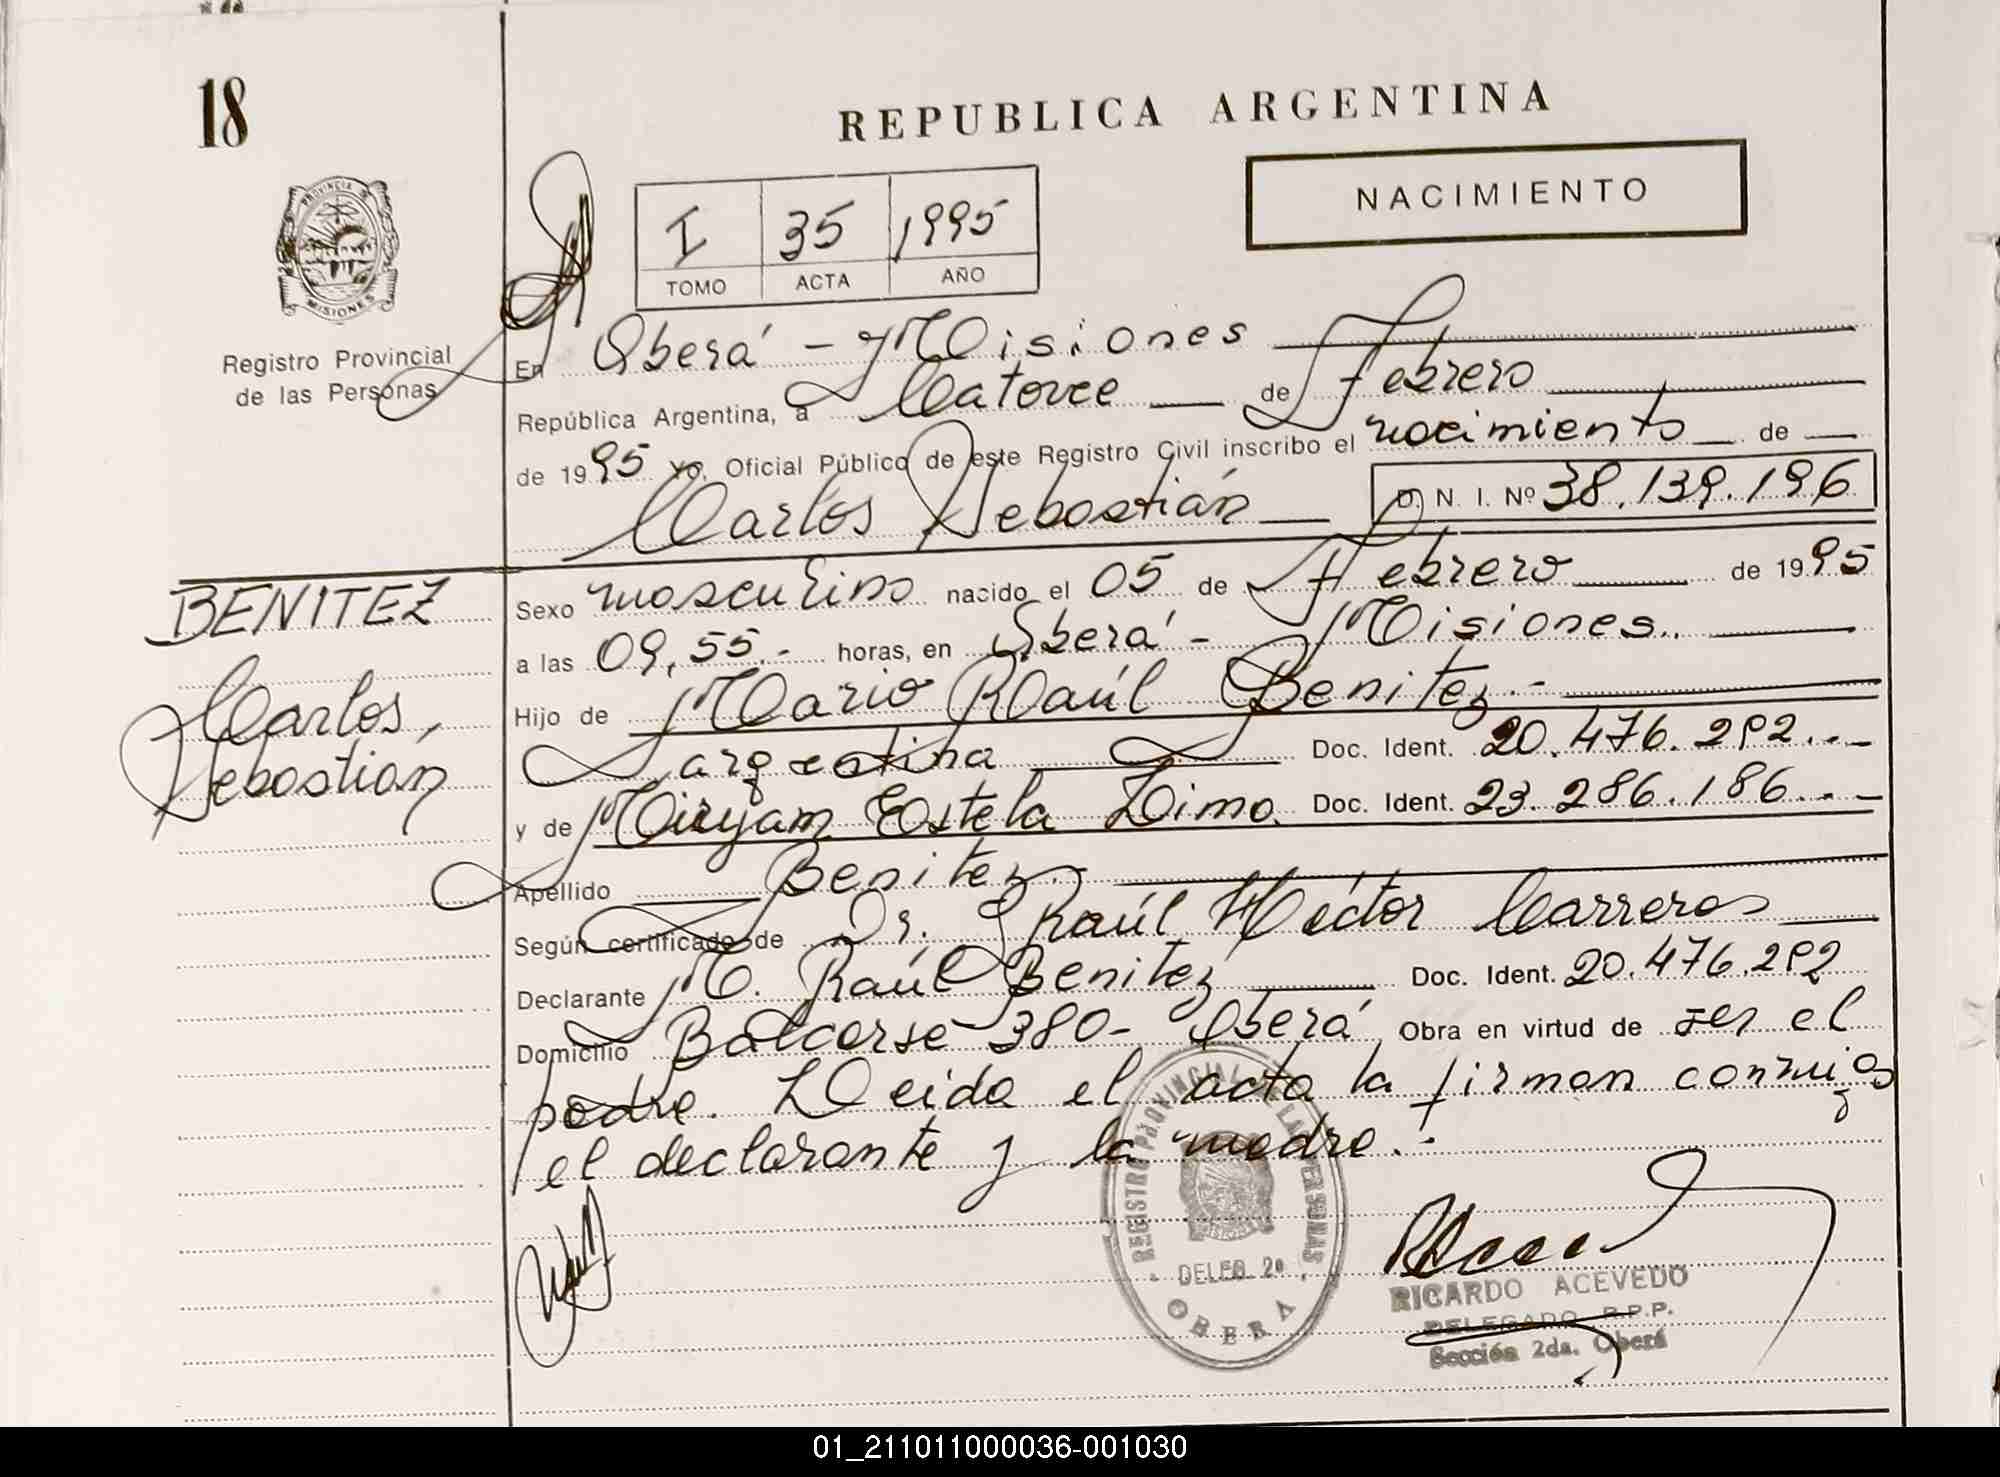 18
REPUBLICA ARGENTINA
NACIMIENTO
PROVINCIA DE
MISIONES
Registro Provincial
de las Personas
I 35 1995
TOMO ACTA AÑO
En Oberá - Misiones
República Argentina, a Catorce de Febrero
de 1995 yo, Oficial Público de este Registro Civil inscribo el nacimiento de
Carlos Sebastián D. N. I. Nº 38.139.196
BENITEZ
Carlos,
Sebastián
Sexo masculino nacido el 05 de Febrero de 1995
a las 09,55.- horas, en Oberá - Misiones..
Hijo de Mario Raúl Benitez.-
argentina Doc. Ident. 20.476.292..-
y de Miryam Estela Limo. Doc. Ident. 23.286.186..-
Apellido Benitez.-
Según certificado de Dr. Raúl Héctor Carreras
Declarante M. Raúl Benitez Doc. Ident. 20.476.292
Domicilio Balcarse 380- Oberá Obra en virtud de ser el
padre. Leida el acta la firman conmigo
el declarante y la madre.-
REGISTRO PROVINCIAL DE LAS PERSONAS
DELEG. 2a
OBERA
RICARDO ACEVEDO
DELEGADO R.P.P.
Sección 2da. Oberá
01_211011000036-001030